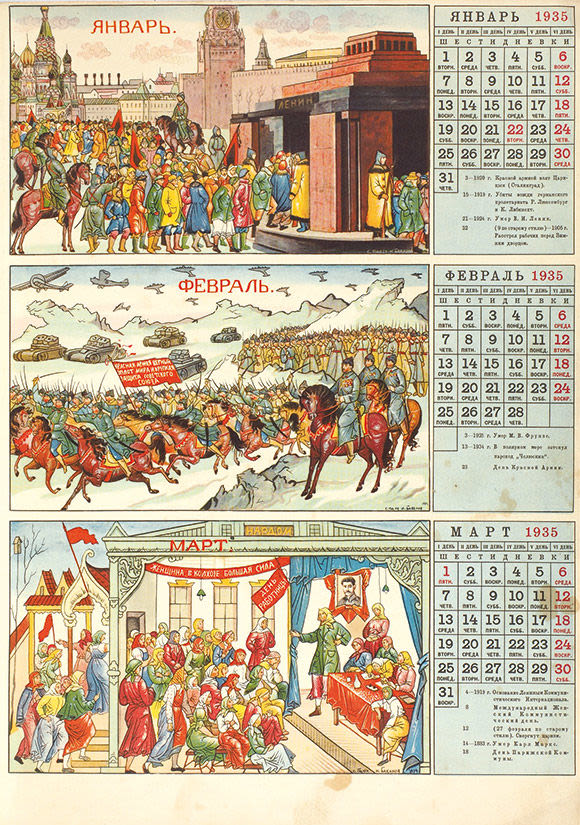 ЯНВАРЬ.
ЛЕНИН
ЯНВАРЬ 1935
I ДЕНЬ II ДЕНЬ III ДЕНЬ IV ДЕНЬ V ДЕНЬ VI ДЕНЬ
ШЕСТИДНЕВКИ
1 2 3 4 5 6
ВТОРН. СРЕДА ЧЕТВ. ПЯТН. СУББ. ВОСКР.
7 8 9 10 11 12
ПОНЕД. ВТОРН. СРЕДА ЧЕТВ. ПЯТН. СУББ.
13 14 15 16 17 18
ВОСКР. ПОНЕД. ВТОРН. СРЕДА ЧЕТВ. ПЯТН.
19 20 21 22 23 24
СУББ. ВОСКР. ПОНЕД. ВТОРН. СРЕДА ЧЕТВ.
25 26 27 28 29 30
ПЯТН. СУББ. ВОСКР. ПОНЕД. ВТОРН. СРЕДА
31
ЧЕТВ.
3—1920 г. Красной армией взят Цари-
цын (Сталинград).
15—1919 г. Убиты вожди германского
пролетариата Р. Люксембург
и К. Либкнехт.
21—1924 г. Умер В. И. Ленин.
22 (9 по старому стилю)—1905 г.
Расстрел рабочих перед Зим-
ним дворцом.
ФЕВРАЛЬ.
КРАСНАЯ АРМИЯ ВЕРНЫЙ
ОПЛОТ МИРА И КРЕПКАЯ
ЗАЩИТА СОВЕТСКОГО
СОЮЗА
ФЕВРАЛЬ 1935
I ДЕНЬ II ДЕНЬ III ДЕНЬ IV ДЕНЬ V ДЕНЬ VI ДЕНЬ
ШЕСТИДНЕВКИ
1 2 3 4 5 6
ПЯТН. СУББ. ВОСКР. ПОНЕД. ВТОРН. СРЕДА
7 8 9 10 11 12
ЧЕТВ. ПЯТН. СУББ. ВОСКР. ПОНЕД. ВТОРН.
13 14 15 16 17 18
СРЕДА ЧЕТВ. ПЯТН. СУББ. ВОСКР. ПОНЕД.
19 20 21 22 23 24
ВТОРН. СРЕДА ЧЕТВ. ПЯТН. СУББ. ВОСКР.
25 26 27 28
ПОНЕД. ВТОРН. СРЕДА ЧЕТВ.
3—1925 г. Умер М. В. Фрунзе.
13—1934 г. В полярном море затонул
пароход „Челюскин".
23 День Красной Армии.
МАРТ.
НАРДОМ
ЖЕНЩИНА В КОЛХОЗЕ БОЛЬШАЯ СИЛА
ДЕНЬ
РАБОТНИЦЫ
МАРТ 1935
I ДЕНЬ II ДЕНЬ III ДЕНЬ IV ДЕНЬ V ДЕНЬ VI ДЕНЬ
ШЕСТИДНЕВКИ
1 2 3 4 5 6
ПЯТН. СУББ. ВОСКР. ПОНЕД. ВТОРН. СРЕДА
7 8 9 10 11 12
ЧЕТВ. ПЯТН. СУББ. ВОСКР. ПОНЕД. ВТОРН.
13 14 15 16 17 18
СРЕДА ЧЕТВ. ПЯТН. СУББ. ВОСКР. ПОНЕД.
19 20 21 22 23 24
ВТОРН. СРЕДА ЧЕТВ. ПЯТН. СУББ. ВОСКР.
25 26 27 28 29 30
ПОНЕД. ВТОРН. СРЕДА ЧЕТВ. ПЯТН. СУББ.
31
ВОСКР.
4—1919 г. Основание Лениным Коммуни-
стического Интернационала.
8 Международный Жен-
ский Коммунисти-
ческий день.
12 (27 февраля по старому
стилю). Свергнут царизм.
14—1883 г. Умер Карл Маркс.
18 День Парижской Ком-
муны.